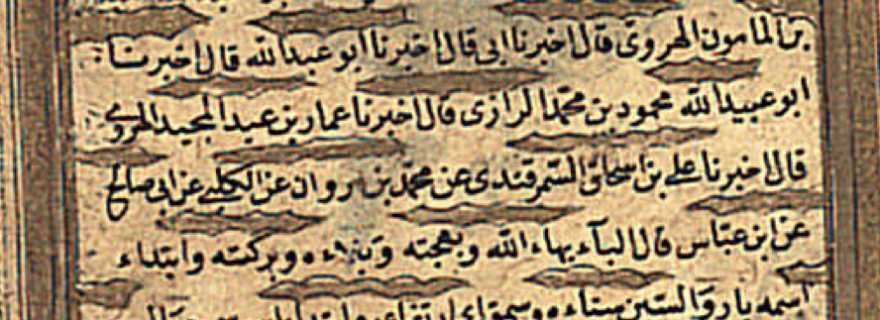 بن المامون الهروى قال اخبرنا ابى قال اخبرنا ابو عبدالله قال اخبرنا
ابو عبيدالله محمود بن محمد الرازى قال اخبرنا عمار بن عبدالمجيد الهروى
قال اخبرنا على بن اسحاق السمرقندى عن محمد بن مروان عن الكلبى عن ابى صالح
عن ابن عباس قال البآء بهاء الله وبهجته وبلاءه وبركته وابتداء
اسمه بارئ السين سناءه وسموه